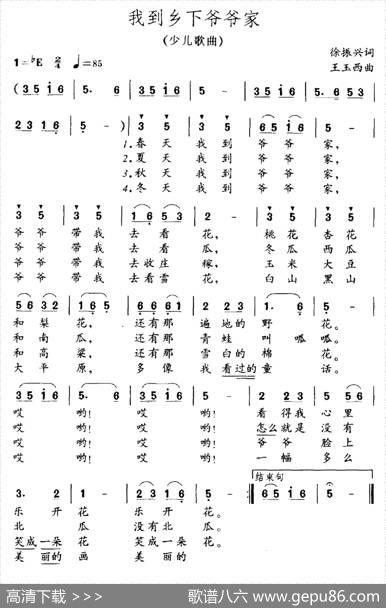 我到乡下爷爷家
(少儿歌曲)
1=♭E 2/4 ♩=85
徐振兴词
王玉西曲
(3 5 i 6 | 5. 6 | 3 5 i 6 | 5 - | 3 5 i 6 | 5 3 5 |
2 3 1 6 | 5 -) | 3 5 | 3 5 | 6 i 5 6 | 5 - |
1.春天我到爷爷家,
2.夏天我到爷爷家,
3.秋天我到爷爷家,
4.冬天我到爷爷家,
3 5 | 3 5 | 1 6 5 3 | 2 - | 3 5 | 3 5 |
爷爷带我去看花,桃花杏花
爷爷带我去看瓜,冬瓜西瓜
爷爷带我去收庄稼,玉米大豆
爷爷带我去看雪花,白山黑山
5 6 3 2 | 1 6 5 | 6 6 6 1 | 2 2 3 | 1. 6 | 5 - |
和梨花,还有那遍地的野花。
和南瓜,还有那青蛙叫呱呱。
和高粱,还有那雪白的棉花。
大平原,多像我看过的童话。
i 7 6 | 5 - | 3 5 i 6 | 5 - | 2 2 2 | 3 5 |
哎哟!哎哟!看得我心里
哎哟!哎哟!怎么就是没有
哎哟!哎哟!爷爷脸上
哎哟!哎哟!一幅多么
结束句
3. 2 | 1 - | 2 3 1 6 | 5 - :| 6 i 5 6 | i - |
乐开花乐开花。
北瓜没有北瓜。
笑成一朵花笑成一朵花。
美丽的画美丽的画
高清下载 >>>
歌谱八六 www.gepu86.com